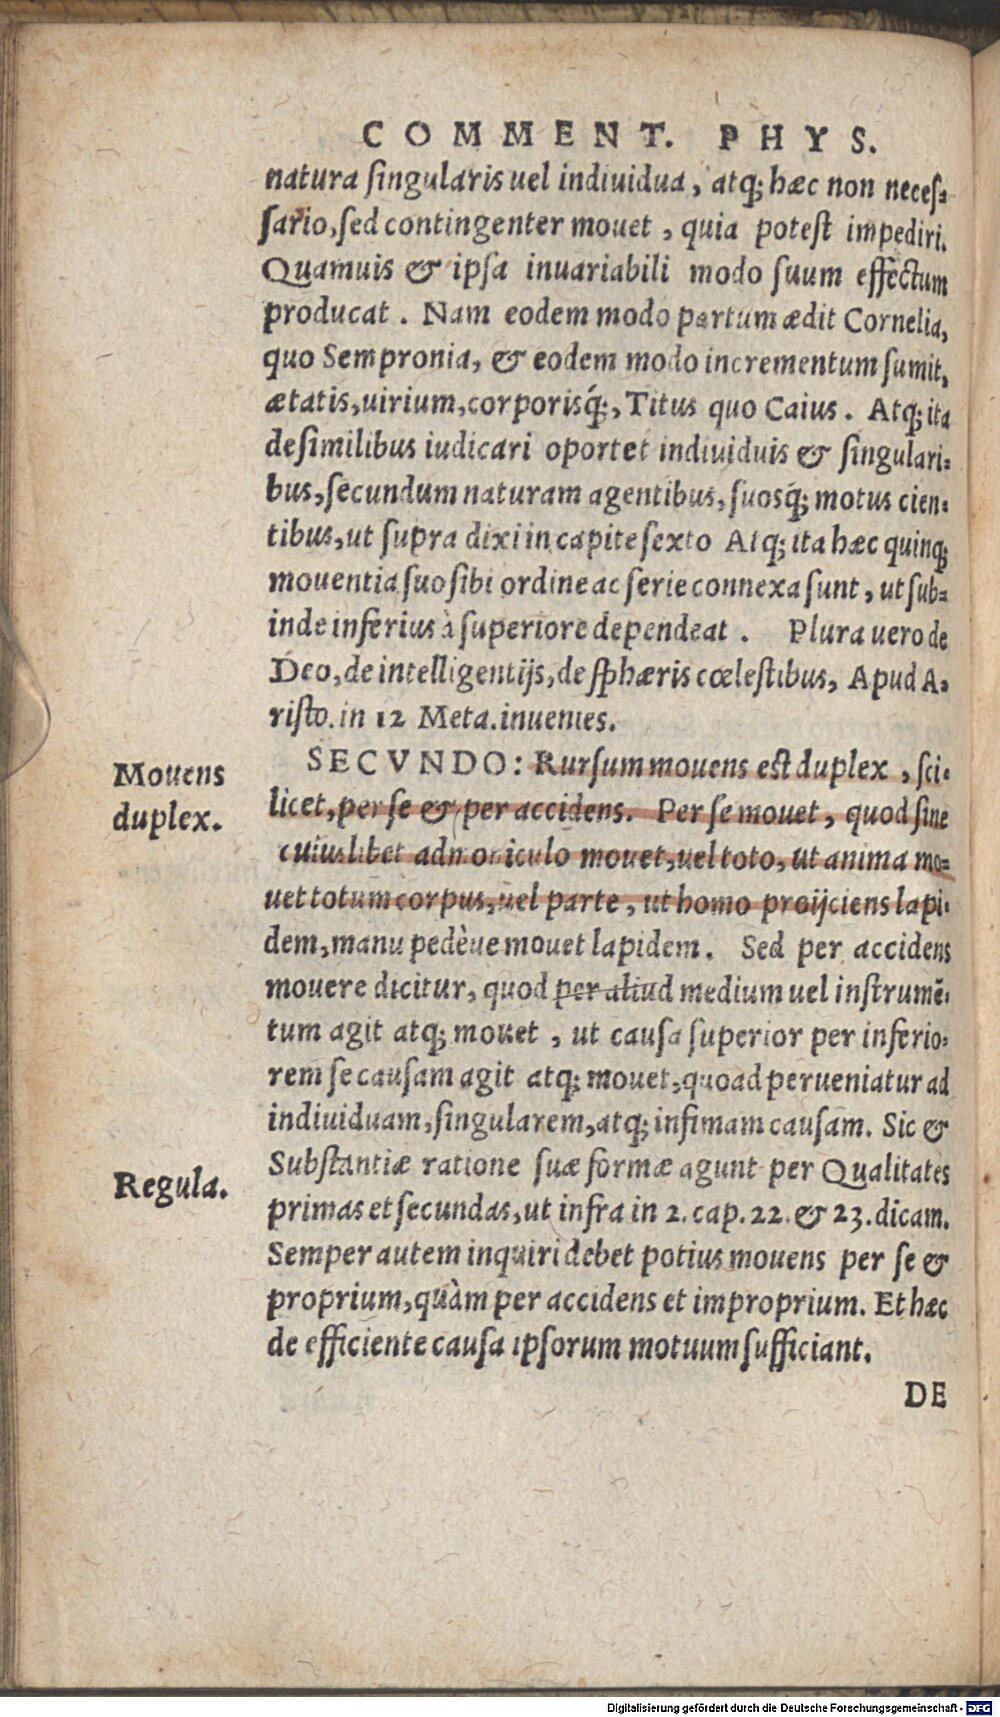 COMMENT. PHYS.
natura singularis uel indiuidua, atq; hæc non neces-
sario, sed contingenter mouet, quia potest impediri.
Quamuis & ipsa inuariabili modo suum effectum
producat. Nam eodem modo partum ædit Cornelia,
quo Sempronia, & eodem modo incrementum sumit,
ætatis, uirium, corporisq́;, Titus quo Caius. Atq; ita
de similibus iudicari oportet indiuiduis & singulari-
bus, secundum naturam agentibus, suosq́; motus cien-
tibus, ut supra dixi in capite sexto Atq; ita hæc quinq;
mouentia suo sibi ordine ac serie connexa sunt, ut sub-
inde inferius à superiore dependeat. Plura uero de
Deo, de intelligentijs, de sphæris cœlestibus, Apud A-
risto. in 12 Meta. inuenies.
Mouens
duplex.
SECVNDO: Rursum mouens est duplex, sci-
licet, per se & per accidens. Per se mouet, quod sine
cuiuslibet adminiculo mouet, uel toto, ut anima mo-
uet totum corpus, uel parte, ut homo proijciens lapi-
dem, manu pedève mouet lapidem. Sed per accidens
mouere dicitur, quod per aliud medium uel instrumẽ-
tum agit atq; mouet, ut causa superior per inferio-
rem se causam agit atq; mouet, quoad perueniatur ad
indiuiduam, singularem, atq; infimam causam. Sic &
Substantiæ ratione suæ formæ agunt per Qualitates
Regula.
primas et secundas, ut infra in 2. cap. 22. & 23. dicam.
Semper autem inquiri debet potius mouens per se &
proprium, quàm per accidens et improprium. Et hæc
de efficiente causa ipsorum motuum sufficiant.
DE
Digitalisierung gefördert durch die Deutsche Forschungsgemeinschaft - DFG